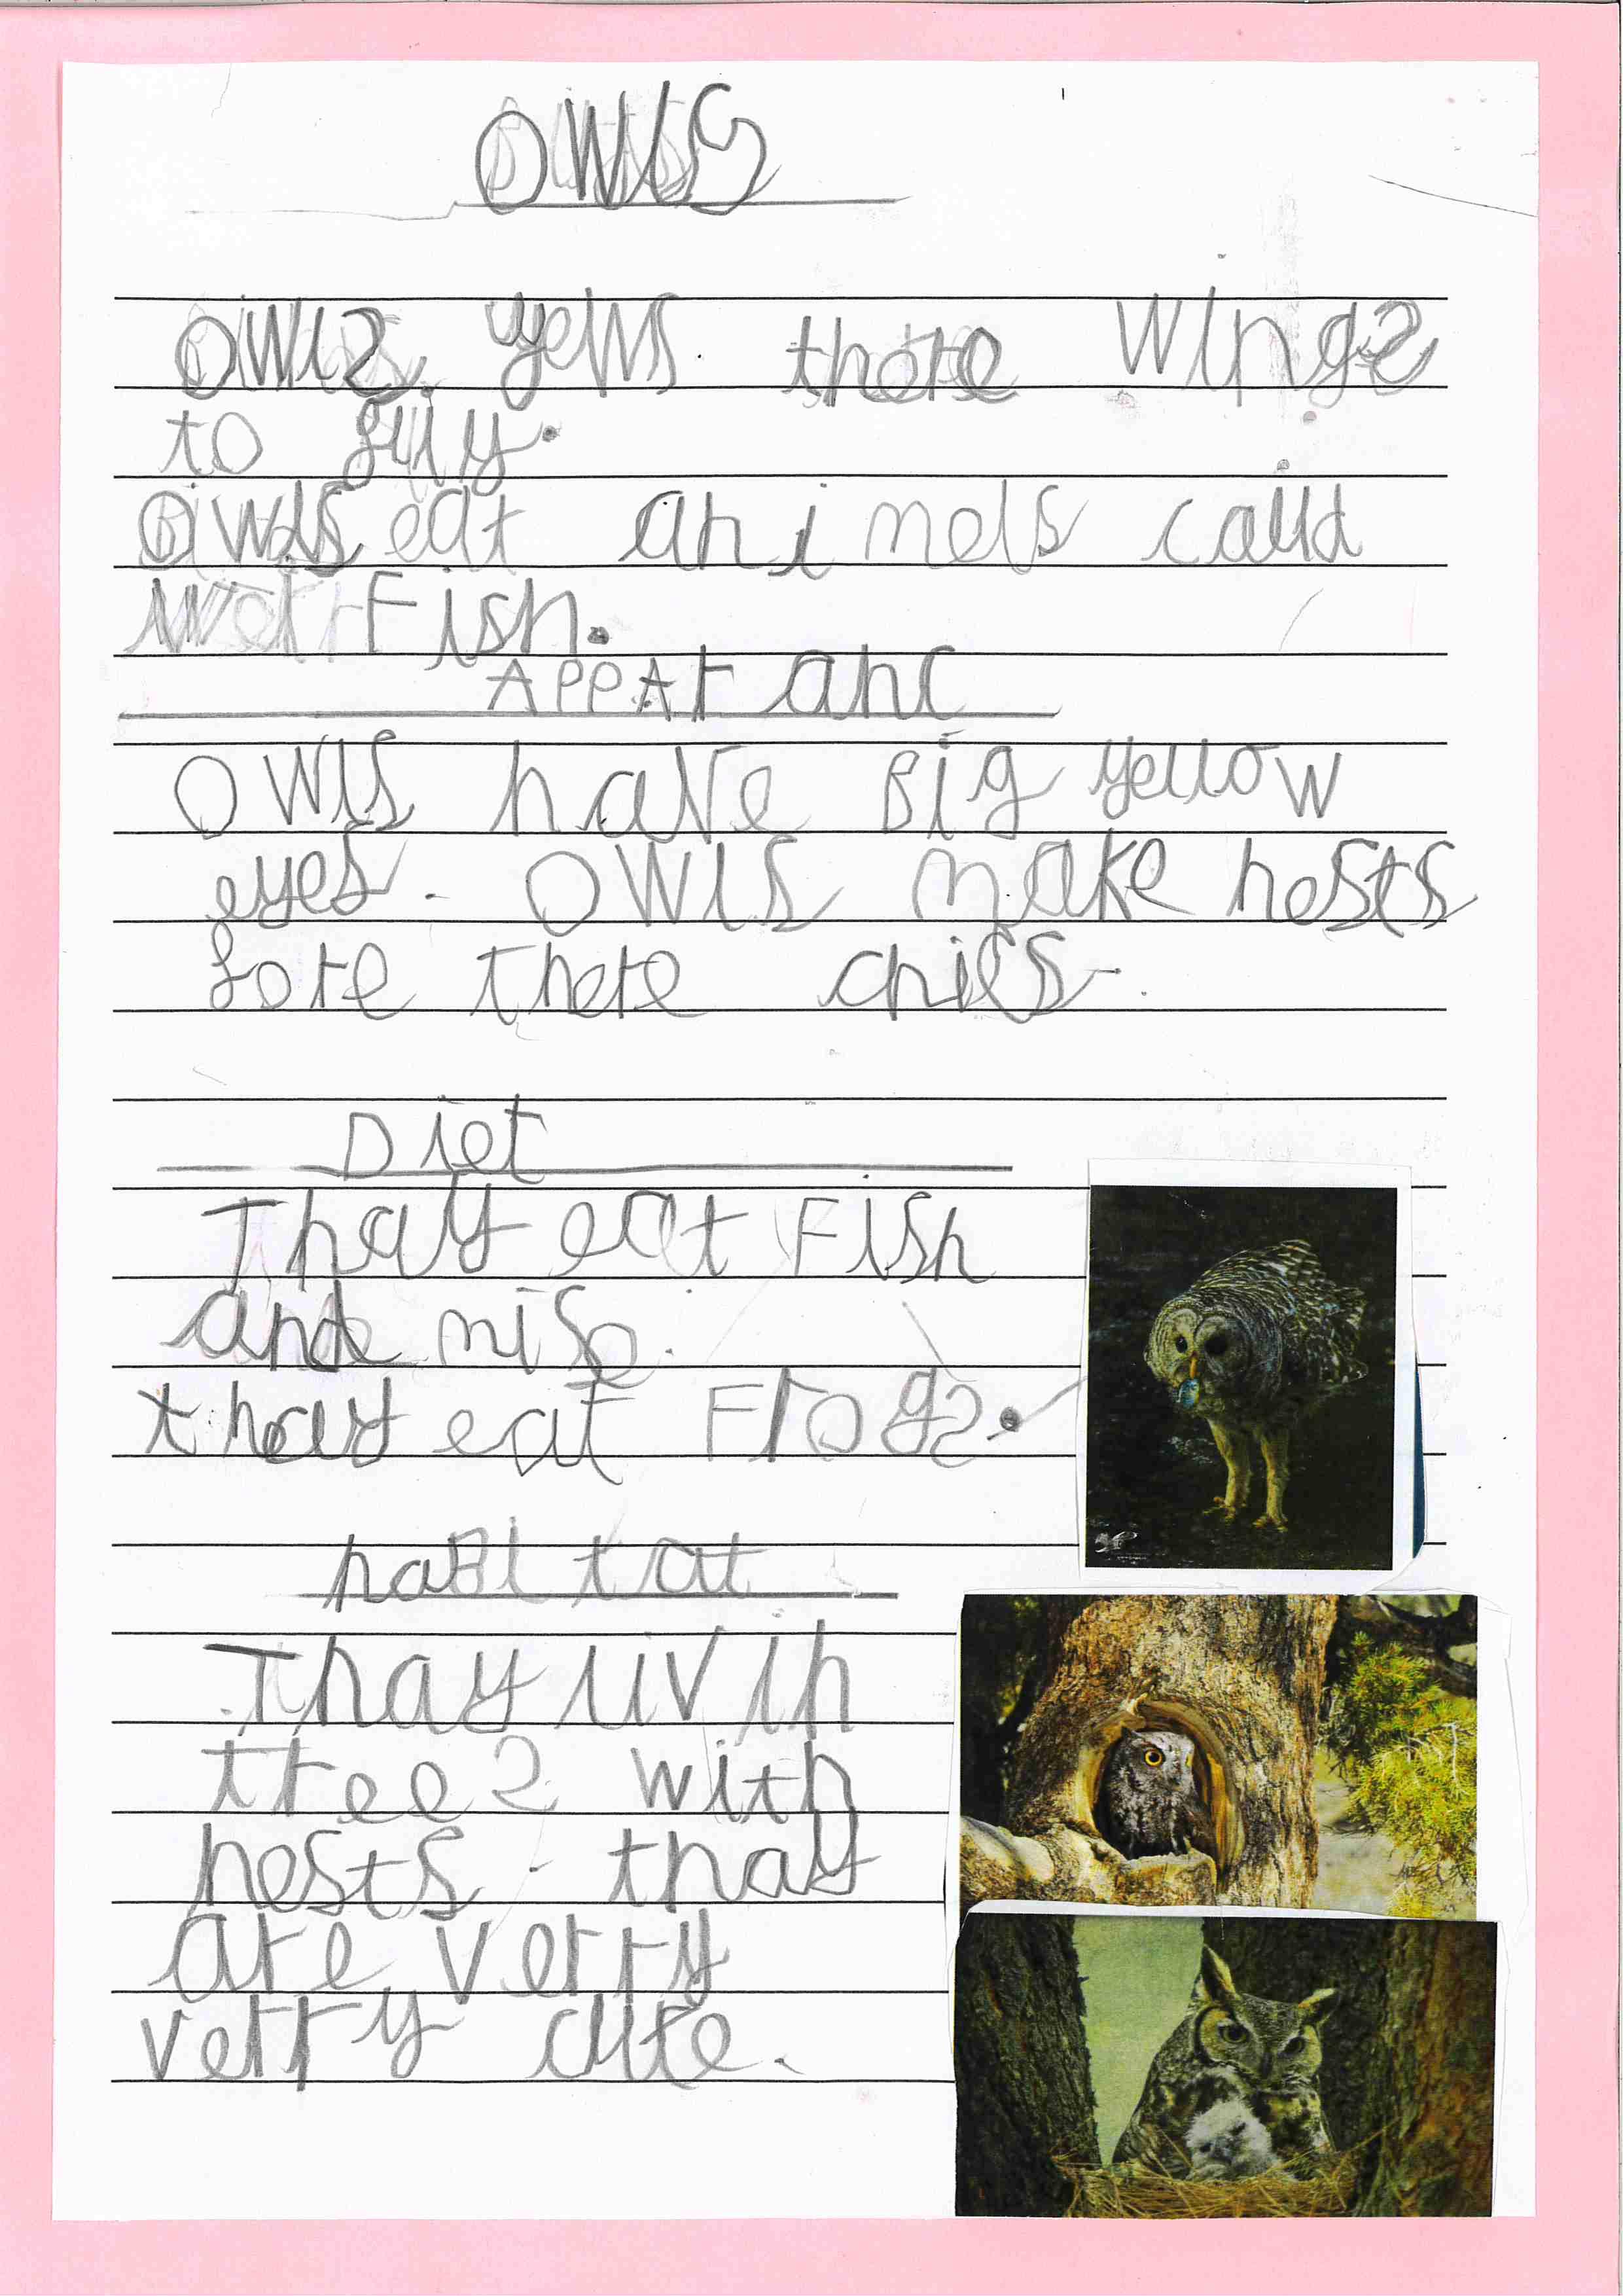 Owls
Owls yews there wings
to fliy.
Owls eat animels calld
Fish.
APPAr anc
Owls have Big yellow
eyes. Owls make nests
fore there chics.
Diet
Thay eat Fish
and mis.
thay eat Frogs.
haBitat
Thay liv in
trees with
nests. thay
are verry
verry cute.